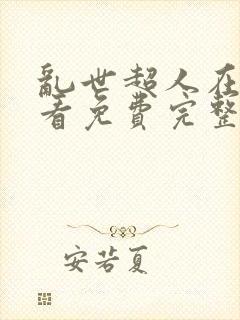 亂世超人在
看免費完整
安若夏